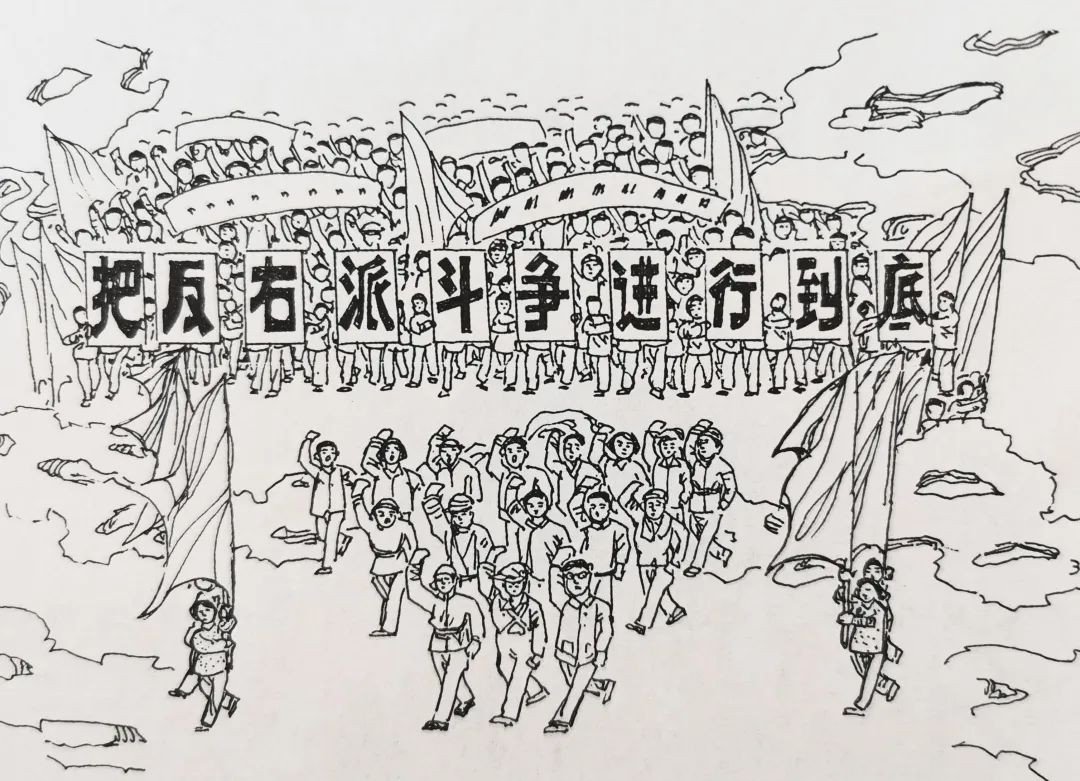 把反右派斗争进行到底